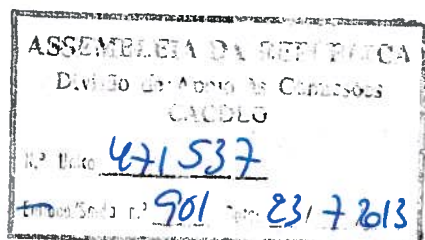 ASSEMBLEIA DA REPÚBLICA
Divisão de Apoio às Comissões
CACDLG
N.º Único 471537
Entrada/Saída n.º 901 Data 23/7/2013